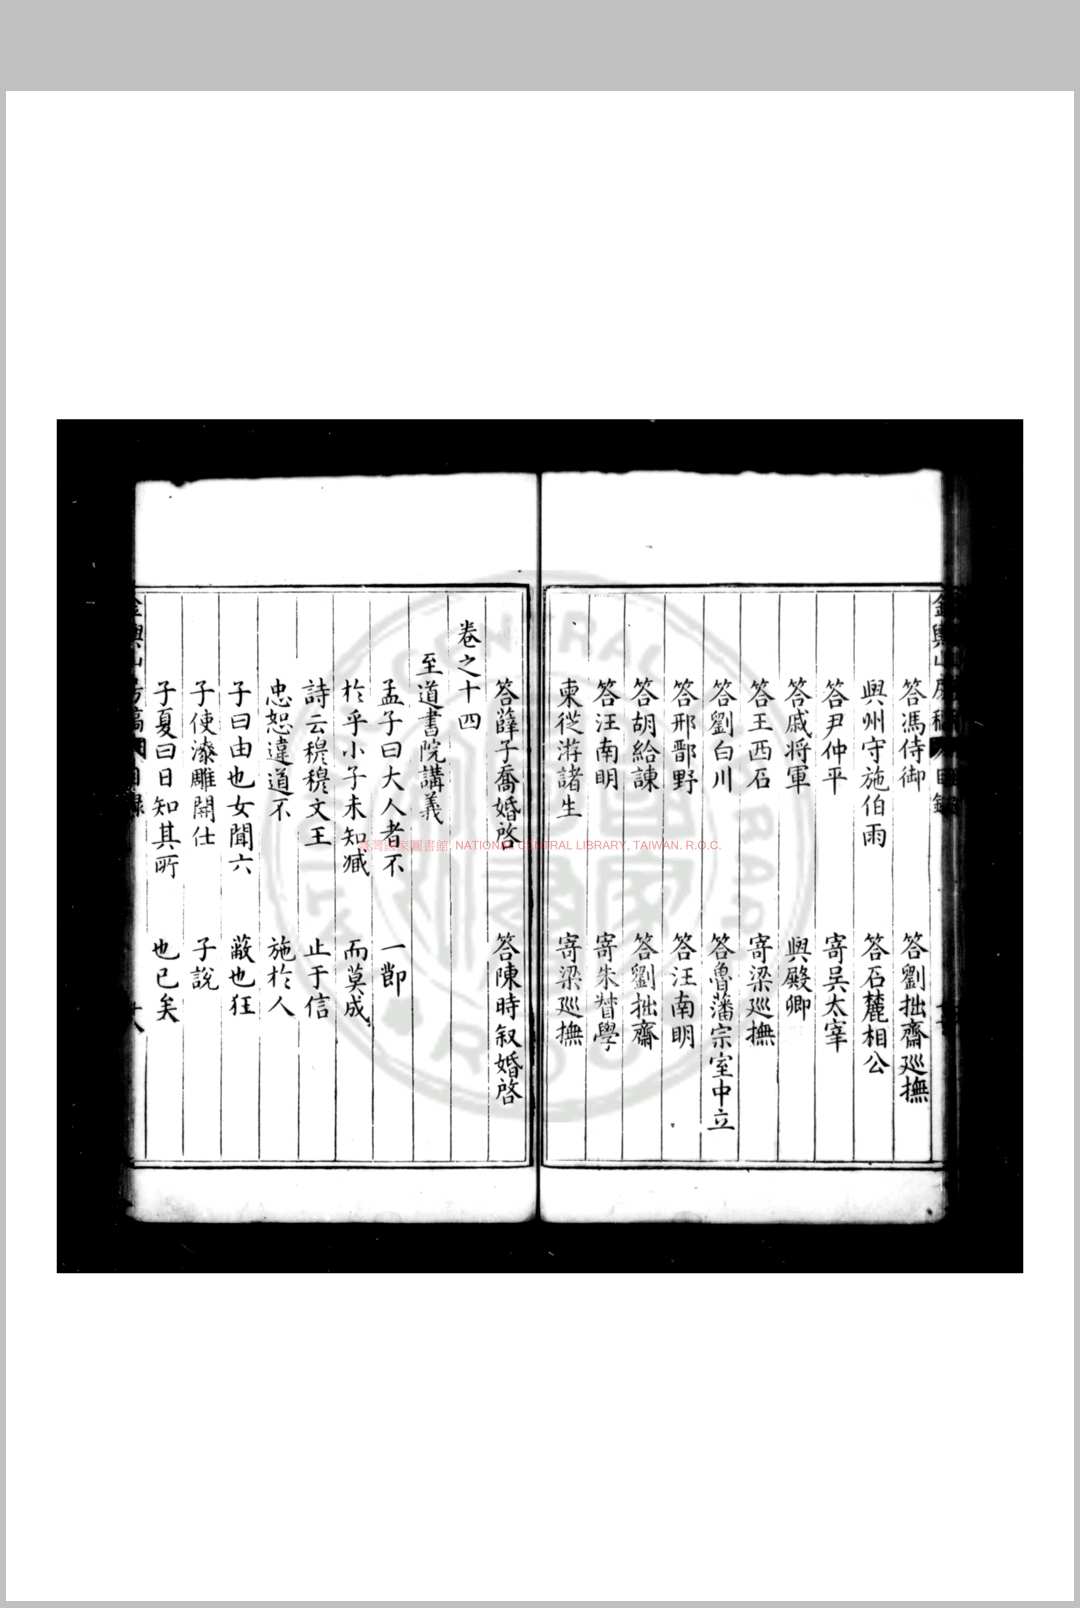 金輿山房稿 目錄
答馮侍御 答劉拙齋廵撫
與州守施伯雨 答石麓相公
答尹仲平 寄吳太宰
答戚將軍 與殿卿
答王西石 寄梁廵撫
答劉白川 答魯藩宗室中立
答邢鄠野 答汪南明
答胡給諫 答劉拙齋
答汪南明 寄朱督學
柬從游諸生 寄梁廵撫
答薛子喬婚啓 答陳時叙婚啓
卷之十四
至道書院講義
孟子曰大人者不 一節
於乎小子未知臧 而莫成
詩云穆穆文王 止于信
忠恕違道不 施於人
子曰由也女聞六 蔽也狂
子使漆雕開仕 子說
子夏曰日知其所 也已矣
金輿山房稿 目錄 十八
臺灣國家圖書館, NATIONAL CENTRAL LIBRARY, TAIWAN, R.O.C.